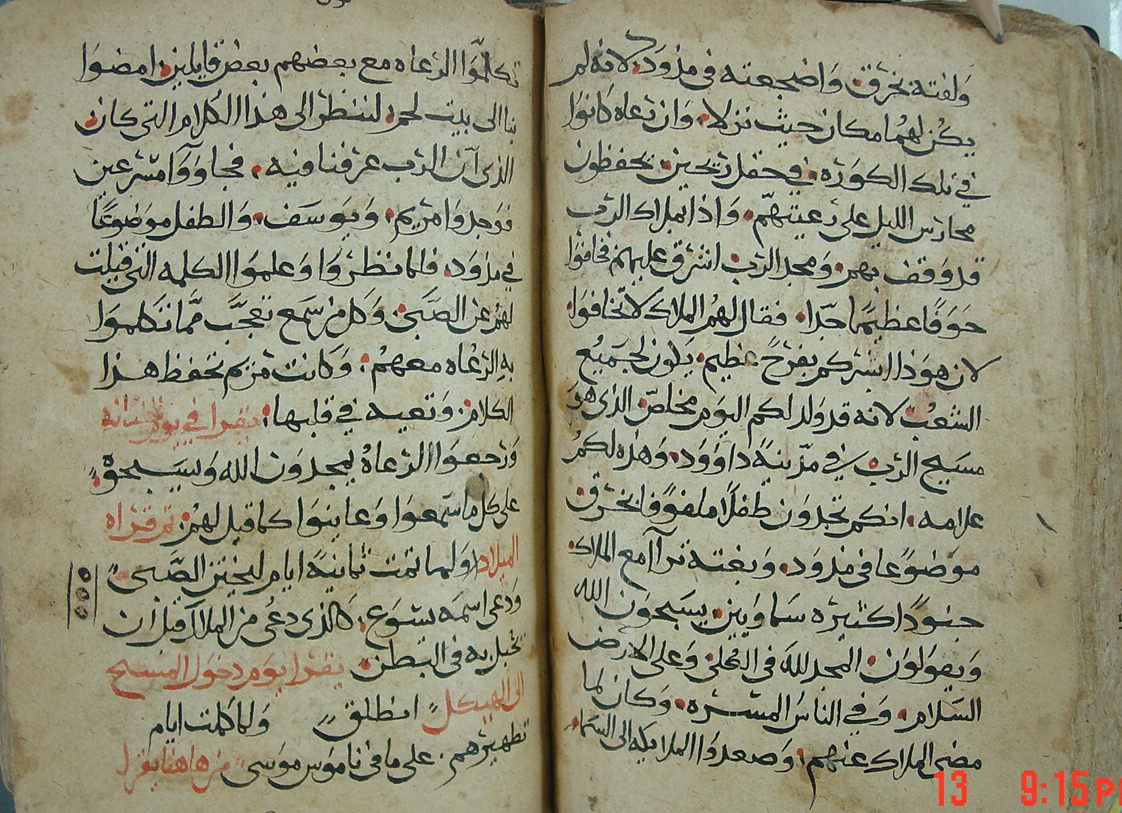 ولفته بخرق. واضجعته فى مذود. لانه لم
يكن لهما مكان حيث نزلا. وان رعاه كانوا
فى تلك الكوره. في حقل ريحين. يحفظون
محارس الليل على رعيتهم. واذا بملاك الرب
قد وقف بهم. ومجد الرب اشرق عليهم فخافوا
خوفًا عظيمًا جدًا. فقال لهم الملاك لا تخافوا.
لان هوذا ابشركم بفرح عظيم. يكون لجميع
الشعب لانه قد ولد لكم اليوم مخلص الذى هو
مسيح الرب. في مدينة داوود. وهذه لكم
علامه. انكم تجدون طفلًا ملفوفًا بخرق.
موضوعًا فى مذود. وبغتة ترآآ مع الملاك.
جنودًا كثيره سماويين. يسبحون الله
ويقولون. المجد لله فى العلى. وعلى الارض
السلام. وفي الناس المسره. وكان لما
مضى الملاك عنهم. وصعدوا الملايكه الى السما.
تكلموا الرعاه مع بعضهم بعض قايلين. امضوا
بنا الى بيت لحم. لننظر الى هذا الكلام التى كان
الذى آن الرب عرفنا فيه. فجاووا مسرعين
فوجدوا مريم. ويوسف. والطفل موضوعًا
في مذود. فلما نظروا وعلموا الكلمه التى قيلت
لهم عن الصبي. وكل من سمع تعجب مما تكلموا
به الرعاه معهم. وكانت مريم تحفظ هذا
الكلام. وتعيه في قلبها. يقرا في يوم
ورجعوا الرعاة يمجدون الله ويسبحوة
على كل ما سمعوا وعاينوا كما قيل لهم. تم قراه
الميلاد ولما تمت ثمانية ايام ليختن الصبي
ودعى اسمه يسوع. كالذى دعى من الملاك قبل ان
تحبل به فى البطن. يقرا يوم دخول المسيح
الى الهيكل انطلق ولما كملت ايام
تطهيرهم. على ما فى ناموس موسى من هاهنا يقرا
13 9:15 P